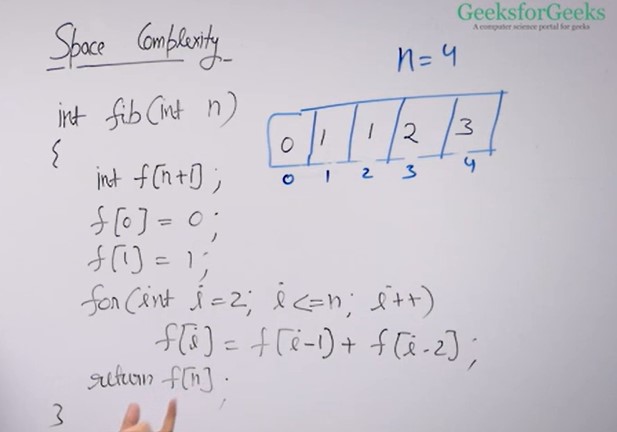 GeeksforGeeks
A computer science portal for geeks
Space Complexity
n=4
int fib(int n)
{
0 1 1 2 3
0 1 2 3 4
int f[n+1];
f[0] = 0;
f[1] = 1;
for(int i=2; i<=n; i++)
f[i] = f[i-1) + f[i-2];
return f[n];
}